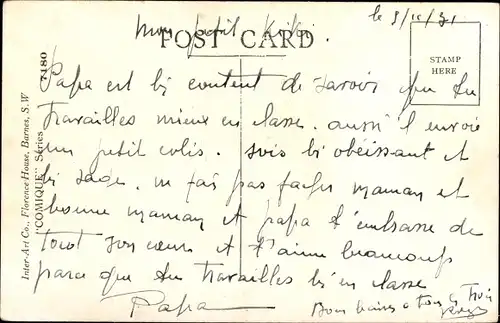 le 9/11/31
mon petit Kiki
POST CARD
STAMP
HERE
Papa est bi content de savoir que tu
travailles mieux en classe. aussi il envoie
un petit colis. sois bi obéissant et
bi sage. ne fais pas facher maman et
bonne maman et papa t'embrasse de
tout son cœur et t'aime beaucoup
parce que tu travailles bi en classe
Papa
Bons baisers a tous les trois
Inter-Art Co., Florence House, Barnes, S.W
"COMIQUE" Séries
7180